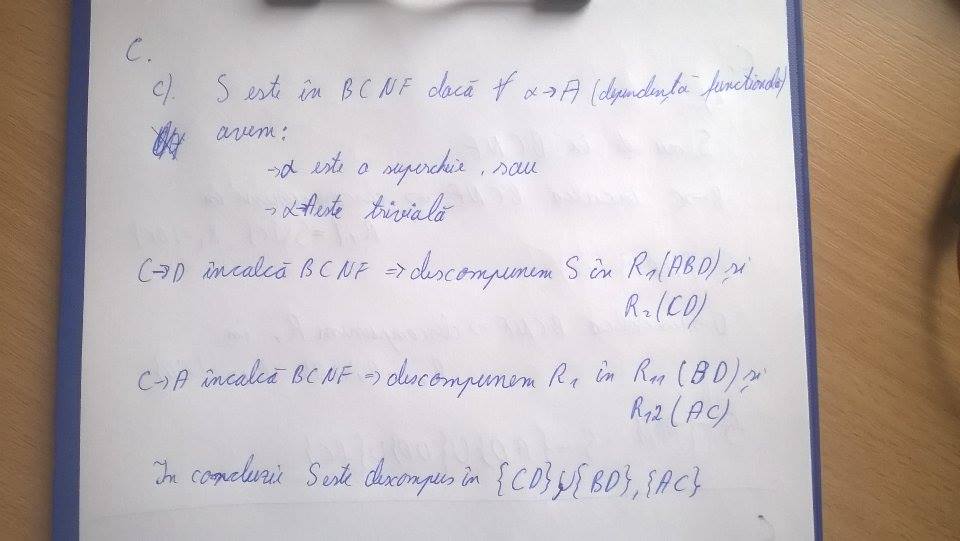 C.
c). S este în BCNF dacă ∀ α→A (dependență funcțională)
avem:
→α este o supercheie, sau
→ α→A este trivială
C→D încalcă BCNF => descompunem S în R1(ABD) și
R2(CD)
C→A încalcă BCNF => descompunem R1 în R11(BD) și
R12(AC)
In concluzie S este descompus în {CD}, {BD}, {AC}